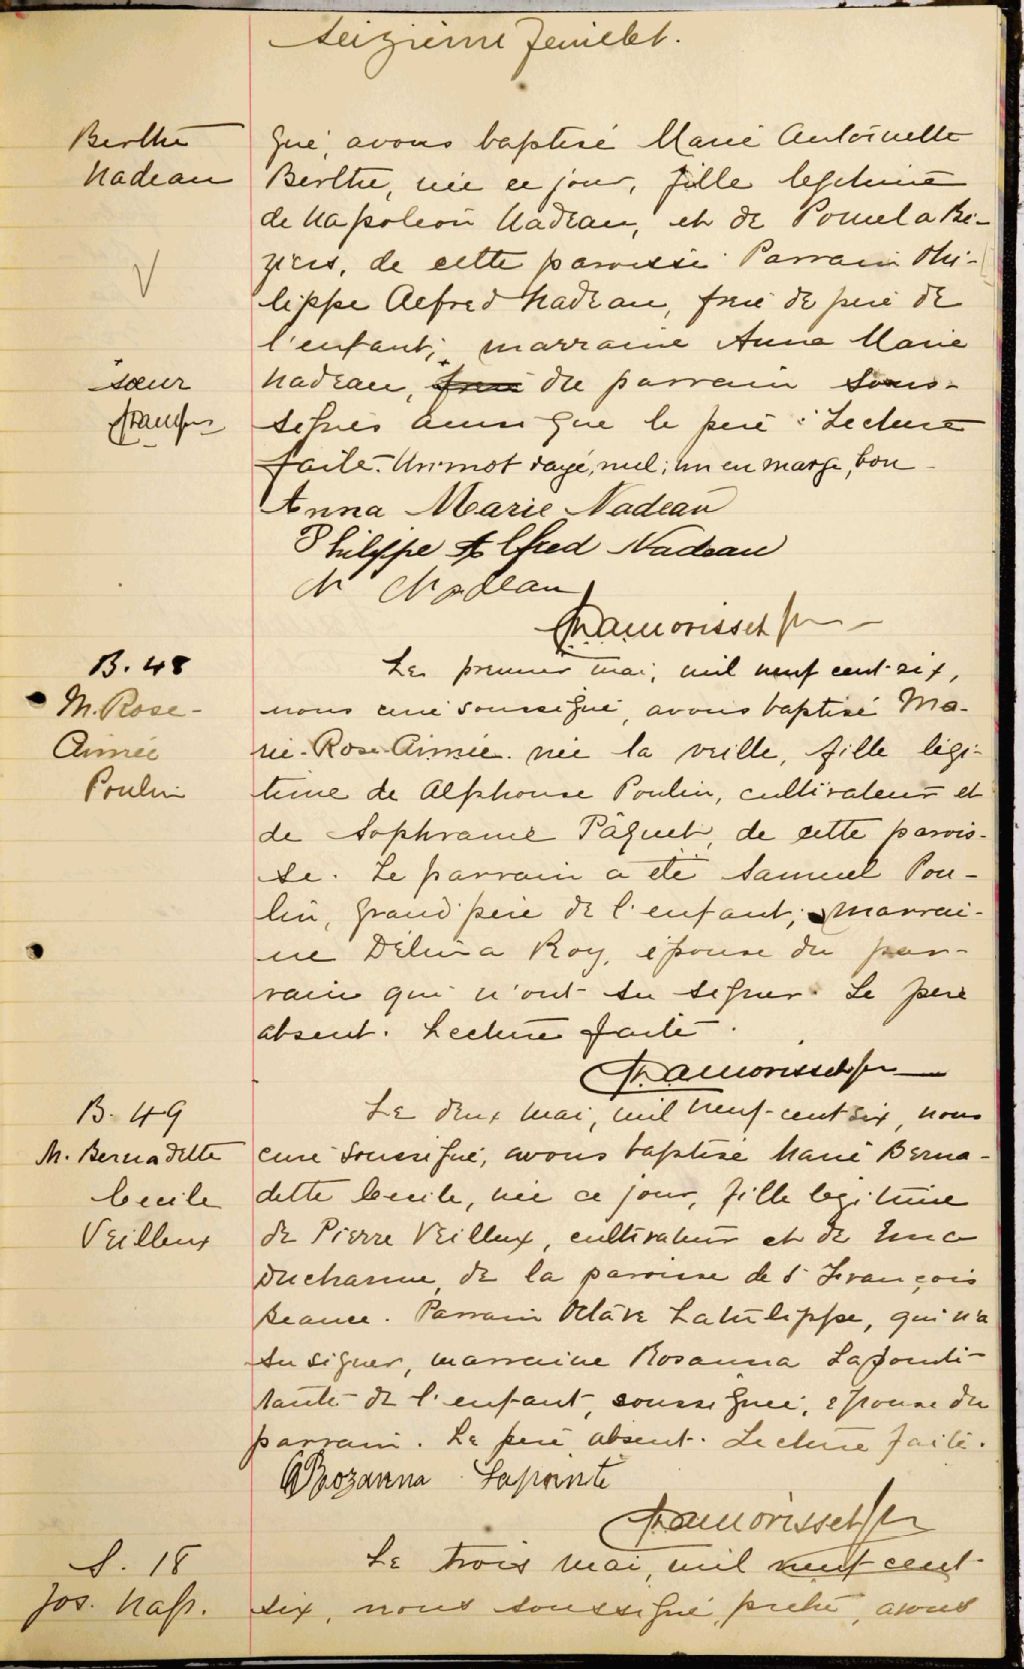 Seizième feuillet.
Berthe
Nadeau
gné, avons baptisé Marie Antoinette
Berthe, née ce jour, fille légitime
de Napoléon Nadeau, et de Pomela Bi-
ziers, de cette paroisse. Parrain Phi-
lippe Alfred Nadeau, frère de père de
l'enfant; marraine Anna Marie
Nadeau, frère du parrain sous-
sœur
signés ainsi que le père. Lecture
faite. Un mot rayé, nul; un en marge, bon
Anna Marie Nadeau
Philippe Alfred Nadeau
N Nadeau
Morisset ptr
B. 48
M. Rose-
Aimée
Poulin
Le premier mai, mil neuf cent-six,
nous curé soussigné, avons baptisé Ma-
rie-Rose-Aimée née la veille, fille légi-
time de Alphonse Poulin, cultivateur et
de Sophranie Pâquet, de cette parois-
se. Le parrain a été Samuel Pou-
lin, grand'père de l'enfant; marrai-
ne Délina Roy, épouse du par-
rain qui n'ont su signer. Le père
absent. Lecture faite.
Morisset ptr
B. 49
M. Bernadette
Cecile
Veilleux
Le deux mai, mil neuf-cent six, nous
curé soussigné, avons baptisé Marie Berna-
dette Cecile, née ce jour, fille légitime
de Pierre Veilleux, cultivateur et de Ema
Ducharme, de la paroisse de S François
Beauce. Parrain Octave Latulippe, qui n'a
su signer, marraine Rosanna Lapointe
tante de l'enfant, soussignée, épouse du
parrain. Le père absent. Lecture faite.
Rozanna Lapointe
Morisset ptr
S. 18
Jos. Nap.
Le trois mai, mil neuf cent-
six, nous soussigné, prêtre, avons